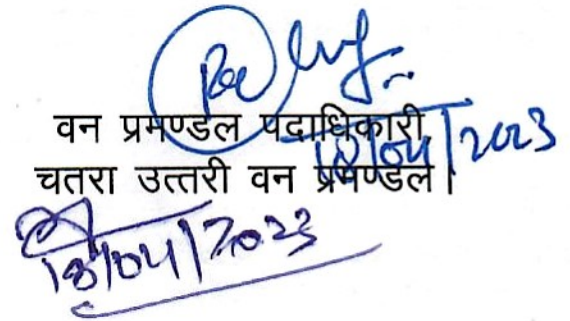 वन प्रमण्डल पदाधिकारी,
18/04/2023
चतरा उत्तरी वन प्रमण्डल।
18/04/2023